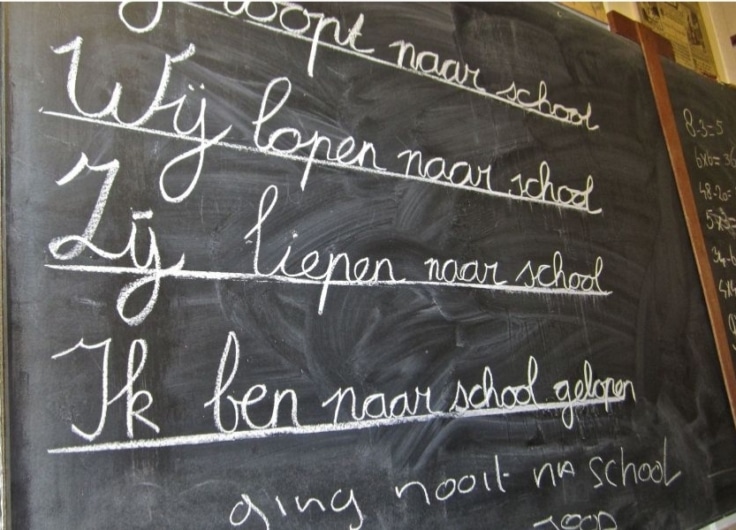 loopt naar school
Wij lopen naar school
Zij liepen naar school
Ik ben naar school gelopen
ging nooit na school
8-3=5
6x6=36
48-20=